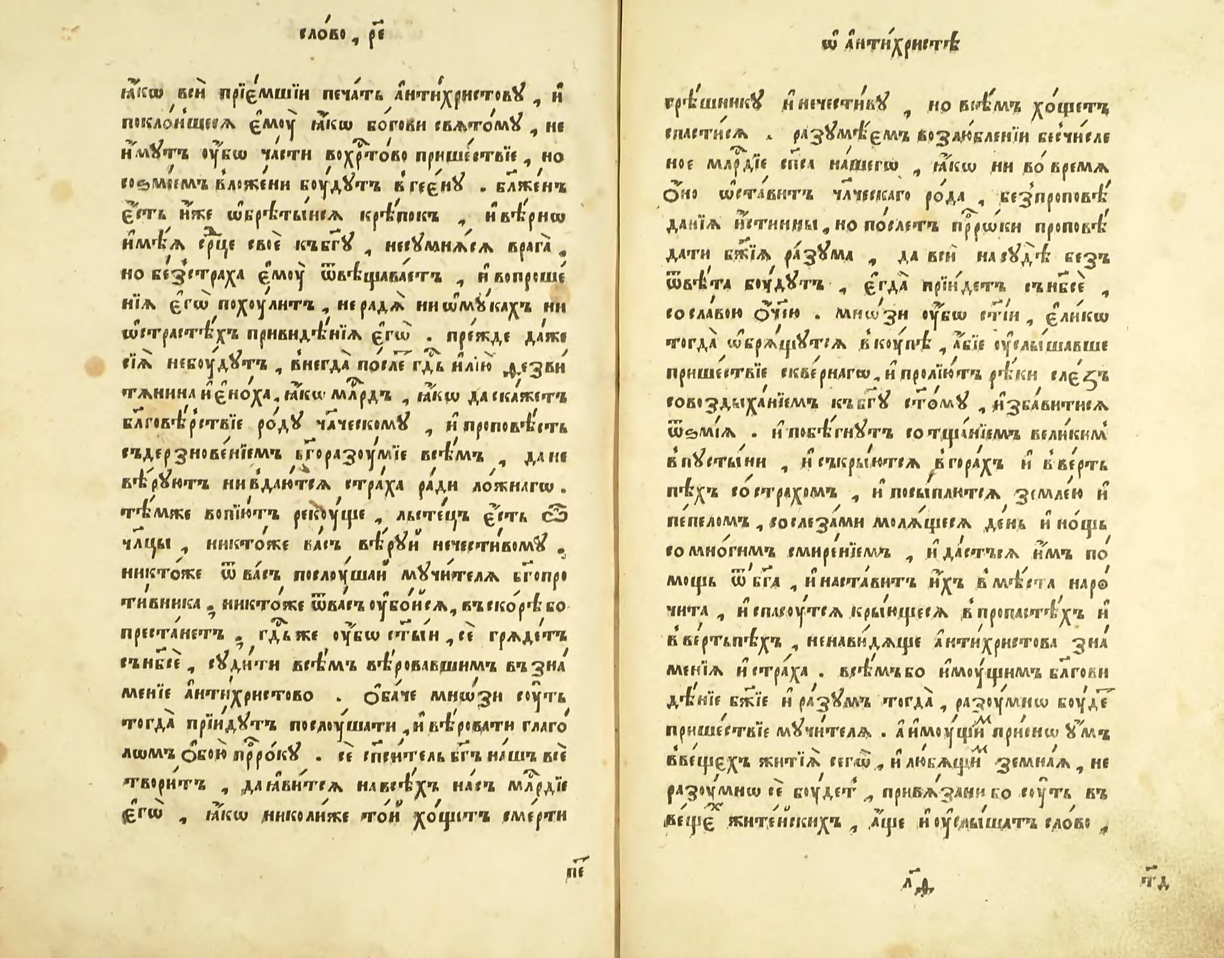 сло́во , рє҃
ꙗ҆́кѡ всѝ прїе́мшїи печа́ть а҆нти́христовꙋ , и҆
покло́ншеесѧ є҆моу̀ ꙗ҆́кѡ бо́гови свѧто́мꙋ , не
и҆́мꙋтъ ᲂу҆́бѡ ча́сти вохрⷭ҇то́во прише́ствїе , но
соѕмїе́мъ вло́жени бо́удꙋтъ вгее́нꙋ . бл҃же́нъ
є҆́сть и҆́же ѡ҆брѣты́йсѧ крѣ́покъ , и҆вѣ́рнѡ
и҆мѣ́ѧ срⷣце своѐ къбг҃ꙋ , несꙋмнѧ́сѧ врага̀ ,
но безстра́ха є҆моу̀ ѿвѣщава́етъ , и҆вопроше́
нїѧ є҆гѡ̀ похо́улитъ , нерадѧ̀ ниѡ҆мꙋ́кахъ ни
ѡ҆стра́стѣхъ привидѣ́нїѧ є҆гѡ̀ . пре́жде да́же
сїѧ̀ небо́удꙋтъ , внегда̀ по́слеⷮ гдⷭ҇ь и҆лїю̀ ѳезви
тѧ́нина и҆є҆но́ха , ꙗ҆́кѡ млⷭ҇рдъ , ꙗ҆́кѡ даска́жетъ
бл҃говѣ́рствїе ро́дꙋ чл҃ческомꙋ , и҆проповѣ́сть
съдерзнове́нїемъ бг҃оразꙋ́мїе всѣ́мъ , дане
вѣ́рꙋютъ нивдаю́тсѧ стра́ха ра́ди ло́жнагѡ .
тѣ́мже вопїю́тъ реко́уще , льсте́цъ є҆́сть ѽ
чл҃цы , никто́же ва́съ вѣ́рꙋй нечести́вомꙋ ,
никто́же ѿ ва́съ послоу́шай мꙋчи́телѧ бг҃опро
ти́вника , никто́же ѿва́съ ᲂу҆бо́йсѧ , въско́рѣ бо
преста́нетъ , гдⷭ҇ь же ᲂу҆́бѡ ст҃ы́и , сѐ грѧде́тъ
сънб҃сѐ , сꙋди́ти всѣ́мъ вѣ́ровавшимъ въ зна́
менїе а҆нти́христово . Ѻ҆ба́че мно́ѕи со́уть
тогда̀ прїи́дꙋтъ послоу́шати , и҆вѣ́ровати глаго́
лѡмъ ѻ҆бою̀ прⷪ҇ро́кꙋ . сѐ сп҃си́тель бг҃ъ на́шъ всѐ
твори́тъ , даꙗ҆ви́тсѧ навсѣ́хъ на́съ млⷭ҇рдїе
є҆гѡ̀ , ꙗ҆́кѡ николи́же то́й хо́щетъ сме́рти
пє҃
ѡ҆ а҆нти́христѣ
грѣ́шникꙋ и҆нечести́вꙋ , но всѣ́мъ хо́щетъ
спасти́сѧ . разꙋмѣ́емъ возлю́бленїи бесчи́сле
ное млⷭ҇рдїе сп҃са на́шегѡ , ꙗ҆́кѡ ни во́ времѧ
ѻ҆́но ѡ҆ста́витъ чл҃ческаго ро́да , безпроповѣ́
данїѧ и҆́стинны , но по́слетъ прⷪ҇ро́ки проповѣ́
дати бж҃їѧ ра́зꙋма , да всѝ насꙋдѣ̀ безъ
ѿвѣ́та бо́удꙋтъ , є҆гда̀ прїи́детъ сънб҃сѐ ,
сосла́вою Ѻ҆́ч҃ею . мно́ѕи ᲂу҆́бѡ ст҃і́и , є҆ли́кѡ
тогда̀ ѡ҆брѧ́щꙋтсѧ вкꙋ́пѣ , а҆́бїе ᲂу҆слы́шавше
прише́ствїе скве́рнагѡ , и҆пролїю́тъ рѣ́ки сле́зъ
совоздыха́нїемъ къбг҃ꙋ ст҃о́мꙋ , и҆зба́витисѧ
ѿѕмі́ѧ . и҆побѣ́гнꙋтъ со тща́нїемъ вели́ким
впꙋсты́ни , и҆съкры́ютсѧ вгора́хъ и҆ вверть
пѣ́хъ состра́хомъ , и҆посы́плютсѧ земле́ю и҆
пе́пеломъ , сослеза́ми молѧ́щесѧ де́нь и҆но́щь
со мно́гимъ смире́нїемъ , и҆да́стъсѧ и҆̀мъ по́
мощь ѿ бг҃а , и҆наста́витъ и҆̀хъ вмѣ́ста наро
чи́та , и҆спасо́утсѧ кры́ющесѧ впропасте́хъ и҆
ввертьпѣ́хъ , ненави́дѧще а҆нти́христова зна́
менїѧ и҆стра́ха . всѣ́мъбо и҆мо́ущимъ бл҃гови
дѣ́нїе бж҃їе и҆ ра́зꙋмъ тогда̀ , разꙋ́мнѡ бо́удеⷮ
прише́ствїе мꙋчи́телѧ . а҆и҆мо́ущиⷨ при́снѡ ᲂу҆́мъ
ввеще́хъ житїѧ̀ сегѡ̀ , и҆лю́бѧщиⷨ земна́ѧ , не
разꙋ́мнѡ сѐ бо́удетъ , привѧ́зани бо со́уть въ
ве́щеⷯ жите́йскихъ , а҆́ще и҆ᲂу҆слы́шатъ сло́во ,
л҃ѳ
п҃д